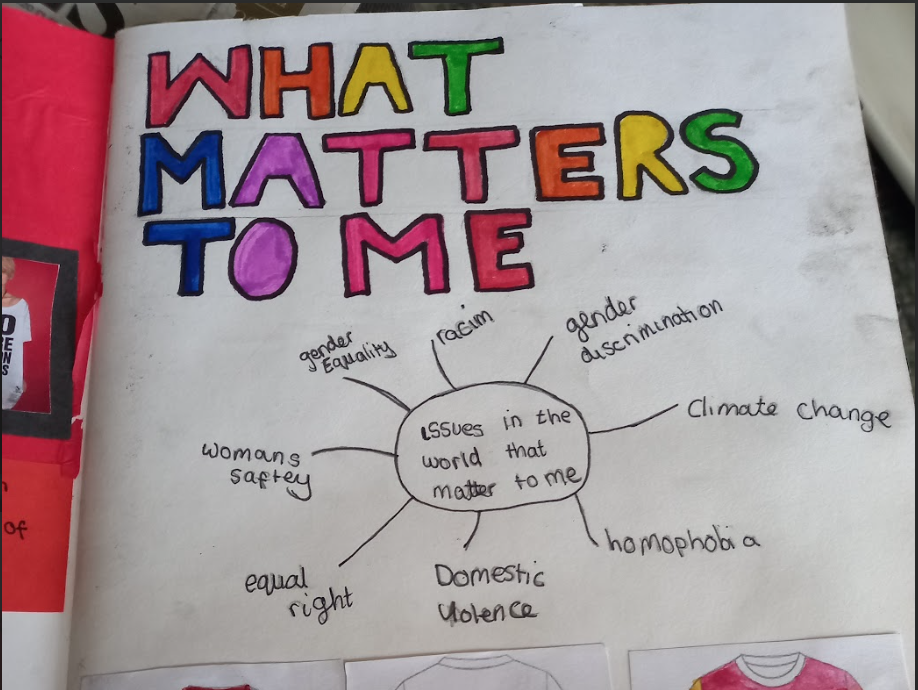 WHAT
MATTERS
TO ME
gender
Equality
racim
gender
discrimination
Climate change
issues in the
world that
matter to me
womans
saftey
equal
right
Domestic
Violence
homophobia
of